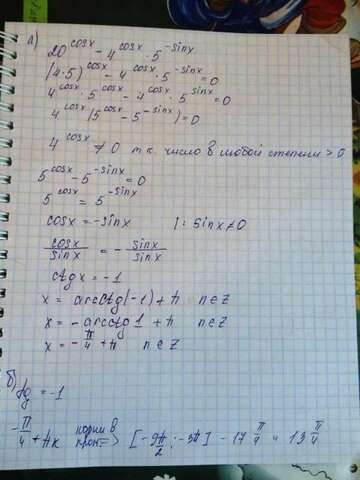 а)
20^cosx - 4^cosx · 5^-sinx
(4·5)^cosx - 4^cosx · 5^-sinx = 0
4^cosx · 5^cosx - 4^cosx · 5^sinx = 0
4^cosx (5^cosx - 5^-sinx) = 0
4^cosx ≠ 0 т.к. число в любой степени > 0
5^cosx - 5^-sinx = 0
5^cosx = 5^-sinx
cosx = -sinx |: sinx ≠ 0
cosx/sinx = - sinx/sinx
ctgx = -1
x = arcctg(-1) + π n∈Z
x = -arcctg1 + π n∈Z
x = -π/4 + π n∈Z
б) tg = -1
-π/4 + πk корни в => [-9π/2; -3π] - 17 π/4 и 13 π/4